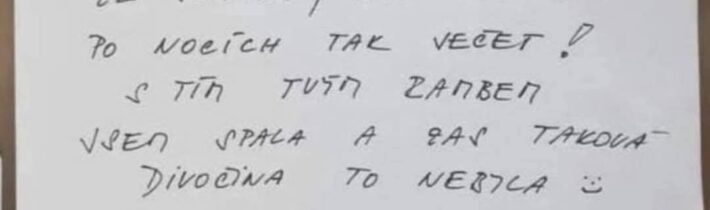 PO NOCÍCH TAK VEČET!
S TÍM TVÝM RAMBEM
JSEM SPALA A ZAS TAKOVÁ
DIVOČINA TO NEBYLA :)